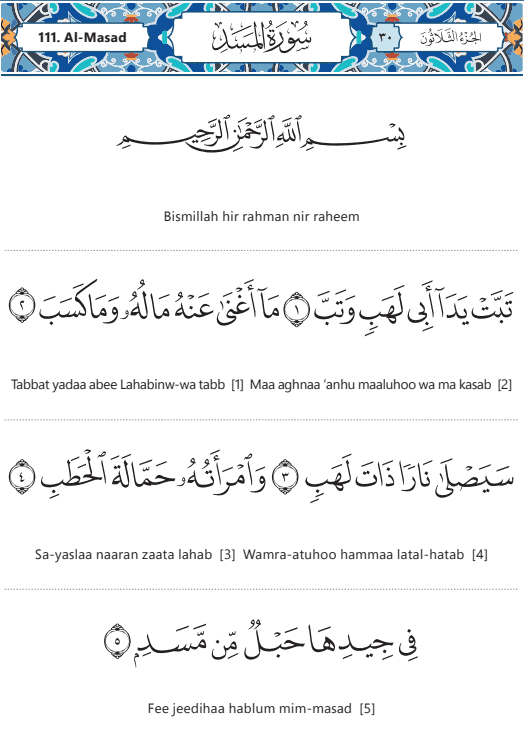 111. Al-Masad سُورَةُ المَسَدِ ٣٠ الجُزْءُ الثَّلَاثُونَ
بِسْمِ اللَّهِ الرَّحْمَٰنِ الرَّحِيمِ
Bismillah hir rahman nir raheem
تَبَّتْ يَدَآ أَبِى لَهَبٍ وَتَبَّ ١ مَآ أَغْنَىٰ عَنْهُ مَالُهُۥ وَمَا كَسَبَ ٢
Tabbat yadaa abee Lahabinw-wa tabb [1] Maa aghnaa ‘anhu maaluhoo wa ma kasab [2]
سَيَصْلَىٰ نَارًا ذَاتَ لَهَبٍ ٣ وَٱمْرَأَتُهُۥ حَمَّالَةَ ٱلْحَطَبِ ٤
Sa-yaslaa naaran zaata lahab [3] Wamra-atuhoo hammaa latal-hatab [4]
فِى جِيدِهَا حَبْلٌ مِّن مَّسَدٍۭ ٥
Fee jeedihaa hablum mim-masad [5]